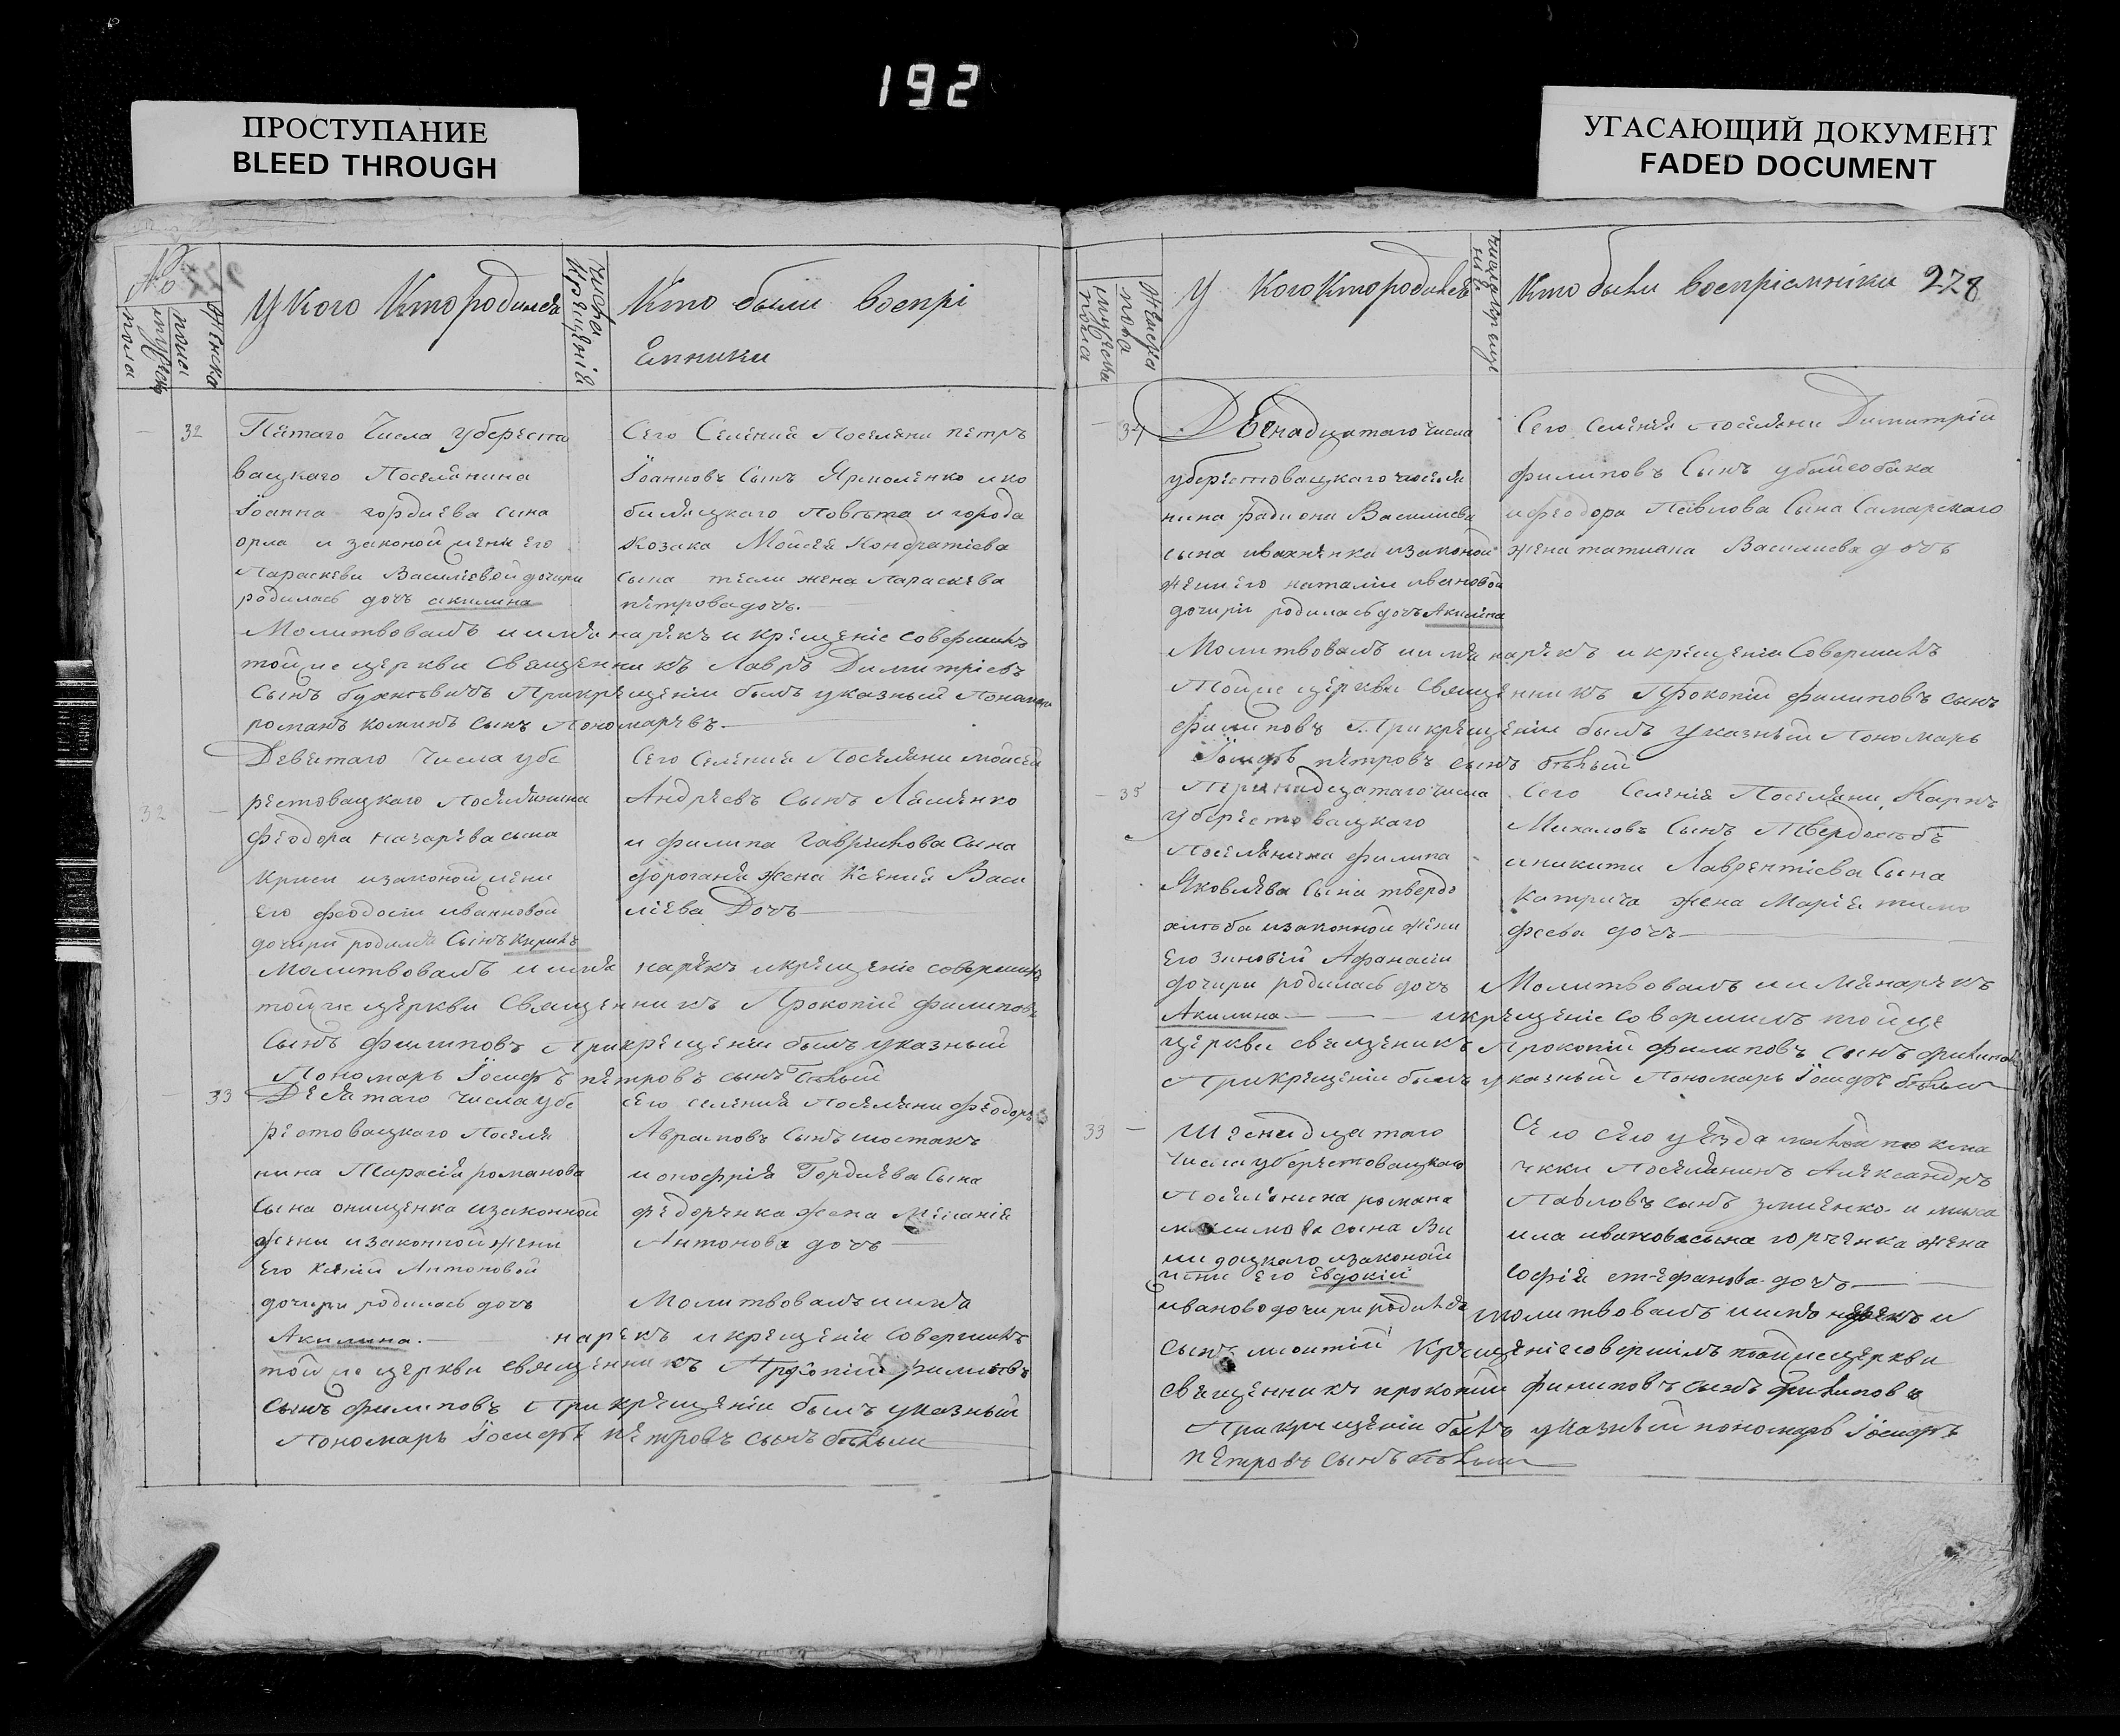 192
ПРОСТУПАНИЕ
BLEED THROUGH
УГАСАЮЩИЙ ДОКУМЕНТ
FADED DOCUMENT
№
мужеска
пола
женска
пола
У кого кто родился
числа
крещенія
Кто были воспрі
емники
32
Пятаго числа убересто
вацкаго поселянина
Іоанна гордиева сина
орла и законой жени его
Параскеви Василіевой дочири
родилась дочь акилина
Сего Селения Поселяни петръ
Іоанновъ Сынъ Ярмоленко и ко
биляцкаго Повѣта и города
Козака Мойсея Кондратіева
сына жена Параскева
петрова дочь.
Молитвовалъ и имя нарекъ и крещеніе совершилъ
той же церкви Священникъ Лавръ Димитріевъ
Сынъ При крещеніи былъ указный Пономарь
романъ сынъ Пономаревъ.
32
Девятаго Числа убе
рестовацкаго Поселянина
Феодора назарева сына
изаконой жени
Его феодосіи ивановой
дочири родился Сынъ Кирилъ
Сего Селения Поселяни мойсей
Андреевъ Сынъ Ляшенко
и филипа гаврилова Сына
дороганя жена Ксения Васи
лиева Дочь
Молитвовалъ и имя нарекъ и крещеніе совершилъ
той же церкви Священникъ Прокопій филиповъ
Сынъ филиповъ При крещеніи былъ указный
Пономарь Іосифъ петровъ сынъ бѣлый
33
Десятаго числа убе
рестовацкаго Поселя
нина Тарасия романова
Сына онищенка изаконной
жени изаконной жени
Его Ксении Антоновой
дочири родилась дочь
Акилина.
Сего селения Поселяни Феодоръ
Аврамовъ Сынъ шостакъ
и онофрія Гордиева Сына
федоренка жена Мелания
Антонова дочь
Молитвовалъ и имя
нарекъ и крещеніе Совершилъ
той же церкви священникъ Прокопій филиповъ
Сынъ филиповъ При крещеніи былъ указный
Пономарь Іосифъ петровъ сынъ бѣлый
женска
пола
мужеска
пола
У кого кто родился
Кто были воспріемники 228
34
Двенадцатаго числа
уберестовацкаго поселя
нина радиона Василиева
сына ивахненка изаконой
жени Его наталіи ивановой
дочири родилась дочь Акилина
Сего Селения поселяни Димитрій
филиповъ Сынъ убыйсобака
и феодора Павлова Сына Самарского
жена татиана Василиева дочь
Молитвовалъ и имя нарекъ и крещеніи Совершилъ
Той же церкви священникъ Прокопій филиповъ сынъ
филиповъ При крещеніи былъ указный Пономарь
Іосифъ петровъ сынъ бѣлый
35
Тринадцатаго числа
уберестовацкаго
Поселянина филипа
Яковлева Сына твердо
хлѣба изаконной жени
Его зиновіи Афанасіи
дочири родилась дочь
Акилина
Сего Селения Поселяни Карпъ
Михаловъ Сынъ Твердохлѣбъ
и никити Лаврентіева Сына
Катрича жена Мария тимо
феева дочь
Молитвовалъ и имя нарекъ
и крещеніе совершилъ той же
церкви священикъ Прокопій филиповъ сынъ филиповъ
При крещеніи былъ указный Пономарь Іосифъ бѣлый
33
Шеснадцатаго
числа уберестовацкаго
Поселянина романа
сына Ви
изаконой
жени его Евдокіи
иваново дочири родился
сынъ леонтій
Сего уезда
Поселянинъ Александръ
Павловъ сынъ змиенко и миха
ила иванова сына горченка жена
софия стефанова дочь
молитвовалъ и имя нарекъ и
крещеніе совершилъ той же церкви
священникъ прокопій филиповъ сынъ филиповъ
При крещеніи былъ указный пономарь Іосифъ
петровъ сынъ бѣлый